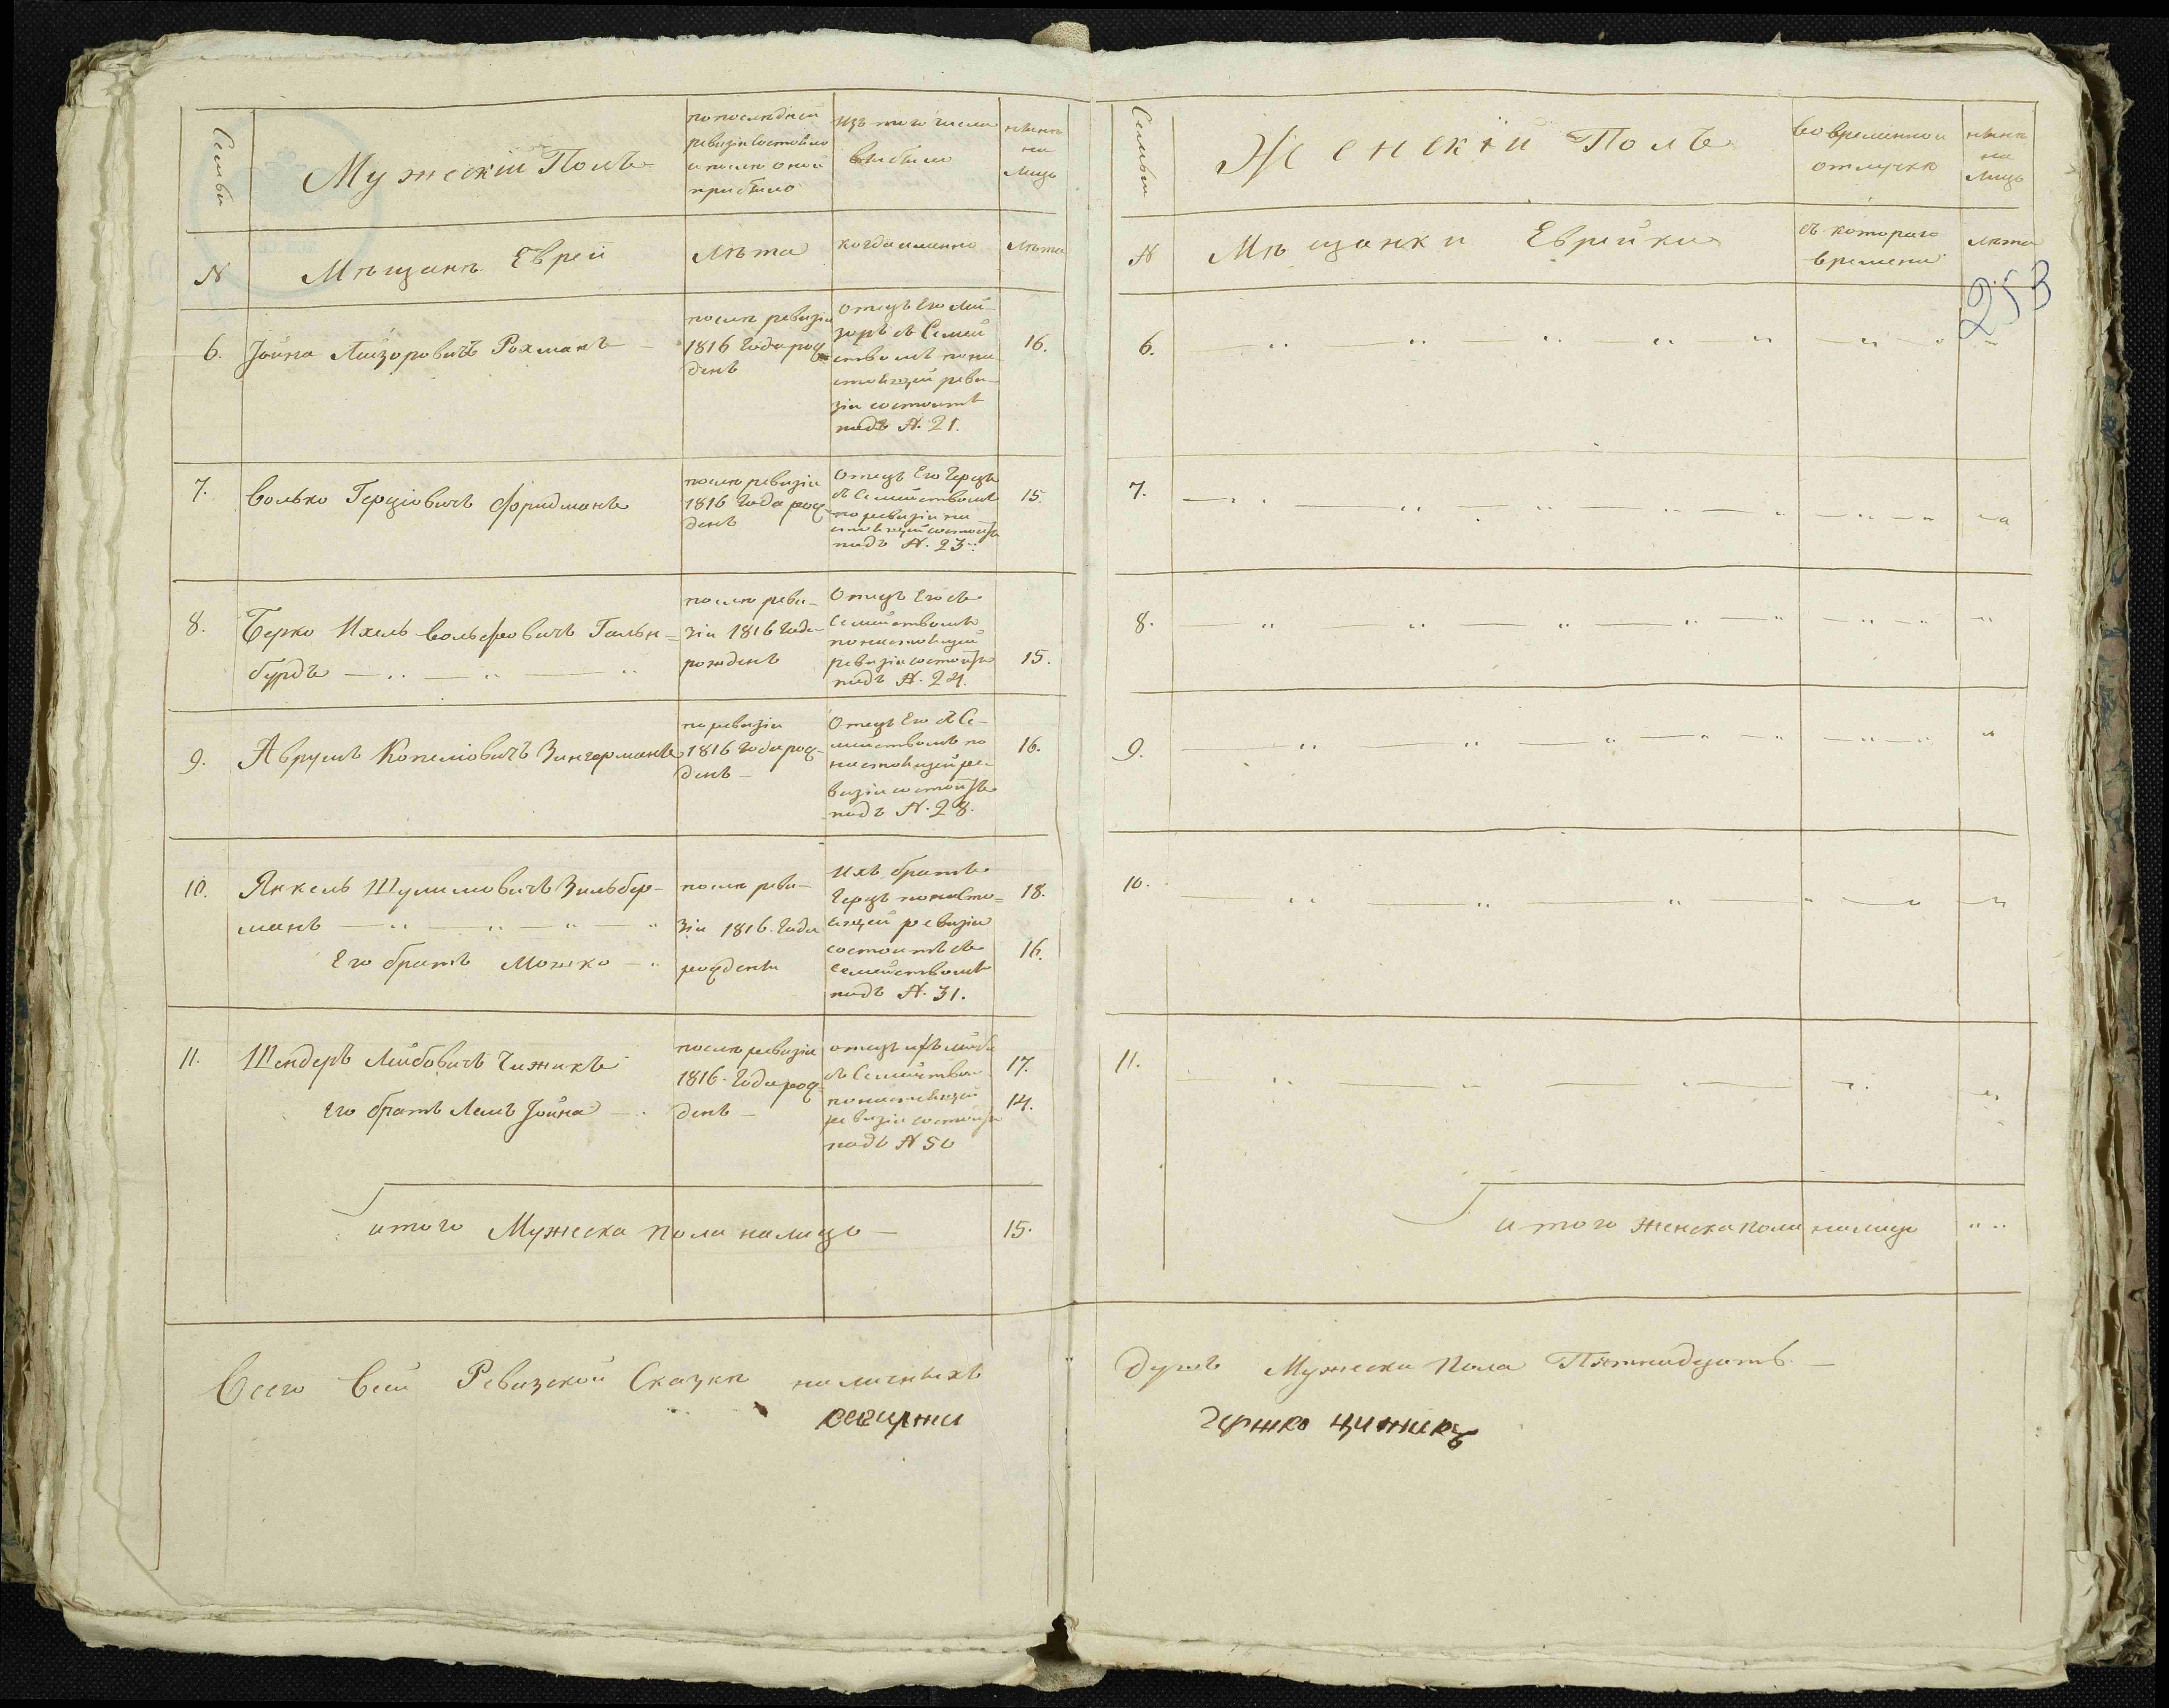 Семьи
Мужескій Полъ
по последней
ревизіи состояло
и после оной
прибыло
изъ того числа
выбыло
ныне
на
лицо
N
Мещане Евреи
Лета
когда именно
Лета
6. Іойна Лейзоровичъ Рохманъ —
после ревизіи
1816 года рож
денъ
Отецъ Его Лей
зоръ съ Семей
ствомъ по на
стоящей реви
зіи состоитъ
подъ N. 21.
16.
7. Волько Герціовичъ Фридманъ
после ревизіи
1816 года рож
денъ
Отецъ Его Герцъ
съ Семействомъ
по ревизіи на
стоящей состоитъ
подъ N. 23.
15.
8. Берко Ихель Вольфовичъ Гольн=
бурдъ — „ — „ — „
после реви-
зіи 1816 года
рожденъ
Отецъ Его съ
Семействомъ
по настоящей
ревизіи состоитъ
подъ N. 24.
15.
9. Аврумъ Копеліовичъ Зингерманъ
по ревизіи
1816 года рож-
денъ —
Отецъ Его съ Се-
мействомъ по
настоящей ре-
визіи состоитъ
подъ N. 28.
16.
10. Янкель Шулимовичъ Зильбер-
манъ — „ — „ — „ — „
Его братъ Мошко — „
после реви-
зіи 1816. Года
рождены
Ихъ братъ
Герцъ по насто=
ящей ревизіи
состоитъ съ
семействомъ
подъ N. 31.
18.
16.
11. Шендеръ Лейбовичъ Чижикъ
Его братъ Лемъ Іойна — „
после ревизіи
1816. Года рож=
денъ —
отецъ ихъ Лейба
съ Семейством
по настоящей
ревизіи состоитъ
подъ N 50
17.
14.
итого Мужеска пола налицо —
15.
Всего въ сей Ревизской Сказке наличныхъ
Семьи
Женскій Полъ
Во временной
отлучке
ныне
на
лицо
N
Мещанки Еврейки
съ котораго
времени
лета
253
6. — „ — „ „ „ „ — „ — „
7. — „ — „ — „ — „ — „ — „
8. — „ „ — „ — „ — „ — „
9. — „ „ — „ — „ — „ — „
10. — „ — „ — „ — „ — „
11. — „ — „ — „ — „
итого женска пола налицо „ „
Душъ Мужеска Пола Пятнадцать —
Гершко Чижикъ